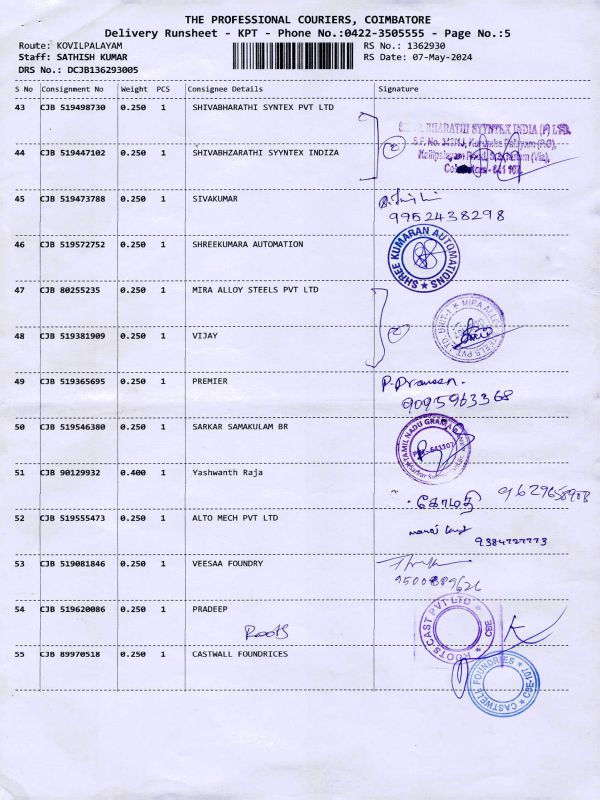 THE PROFESSIONAL COURIERS, COIMBATORE
Delivery Runsheet - KPT - Phone No.:0422-3505555 - Page No.:5
Route: KOVILPALAYAM RS No.: 1362930
Staff: SATHISH KUMAR RS Date: 07-May-2024
DRS No.: DCJB136293005
S No Consignment No Weight PCS Consignee Details Signature
43 CJB 519498730 0.250 1 SHIVABHARATHI SYNTEX PVT LTD
BHARATHI SYYNTEX INDIA (P) LTD,
44 CJB 519447102 0.250 1 SHIVABHZARATHI SYYNTEX INDIZA
2
45 CJB 519473788 0.250 1 SIVAKUMAR
9952438298
46 CJB 519572752 0.250 1 SHREEKUMARA AUTOMATION
SHREE KUMARAN AUTOMATIONS
47 CJB 80255235 0.250 1 MIRA ALLOY STEELS PVT LTD
48 CJB 519381909 0.250 1 VIJAY
2
49 CJB 519365695 0.250 1 PREMIER
P. Praveen.
9095963368
50 CJB 519546380 0.250 1 SARKAR SAMAKULAM BR
TAMIL NADU GRAMA
51 CJB 90129932 0.400 1 Yashwanth Raja
கோமதி
52 CJB 519555473 0.250 1 ALTO MECH PVT LTD
53 CJB 519081846 0.250 1 VEESAA FOUNDRY
54 CJB 519620086 0.250 1 PRADEEP
Roots
ROOTS CAST PVT LTD CBE
55 CJB 89970518 0.250 1 CASTWALL FOUNDRICES
CASTWELL FOUNDRIES CBE-107